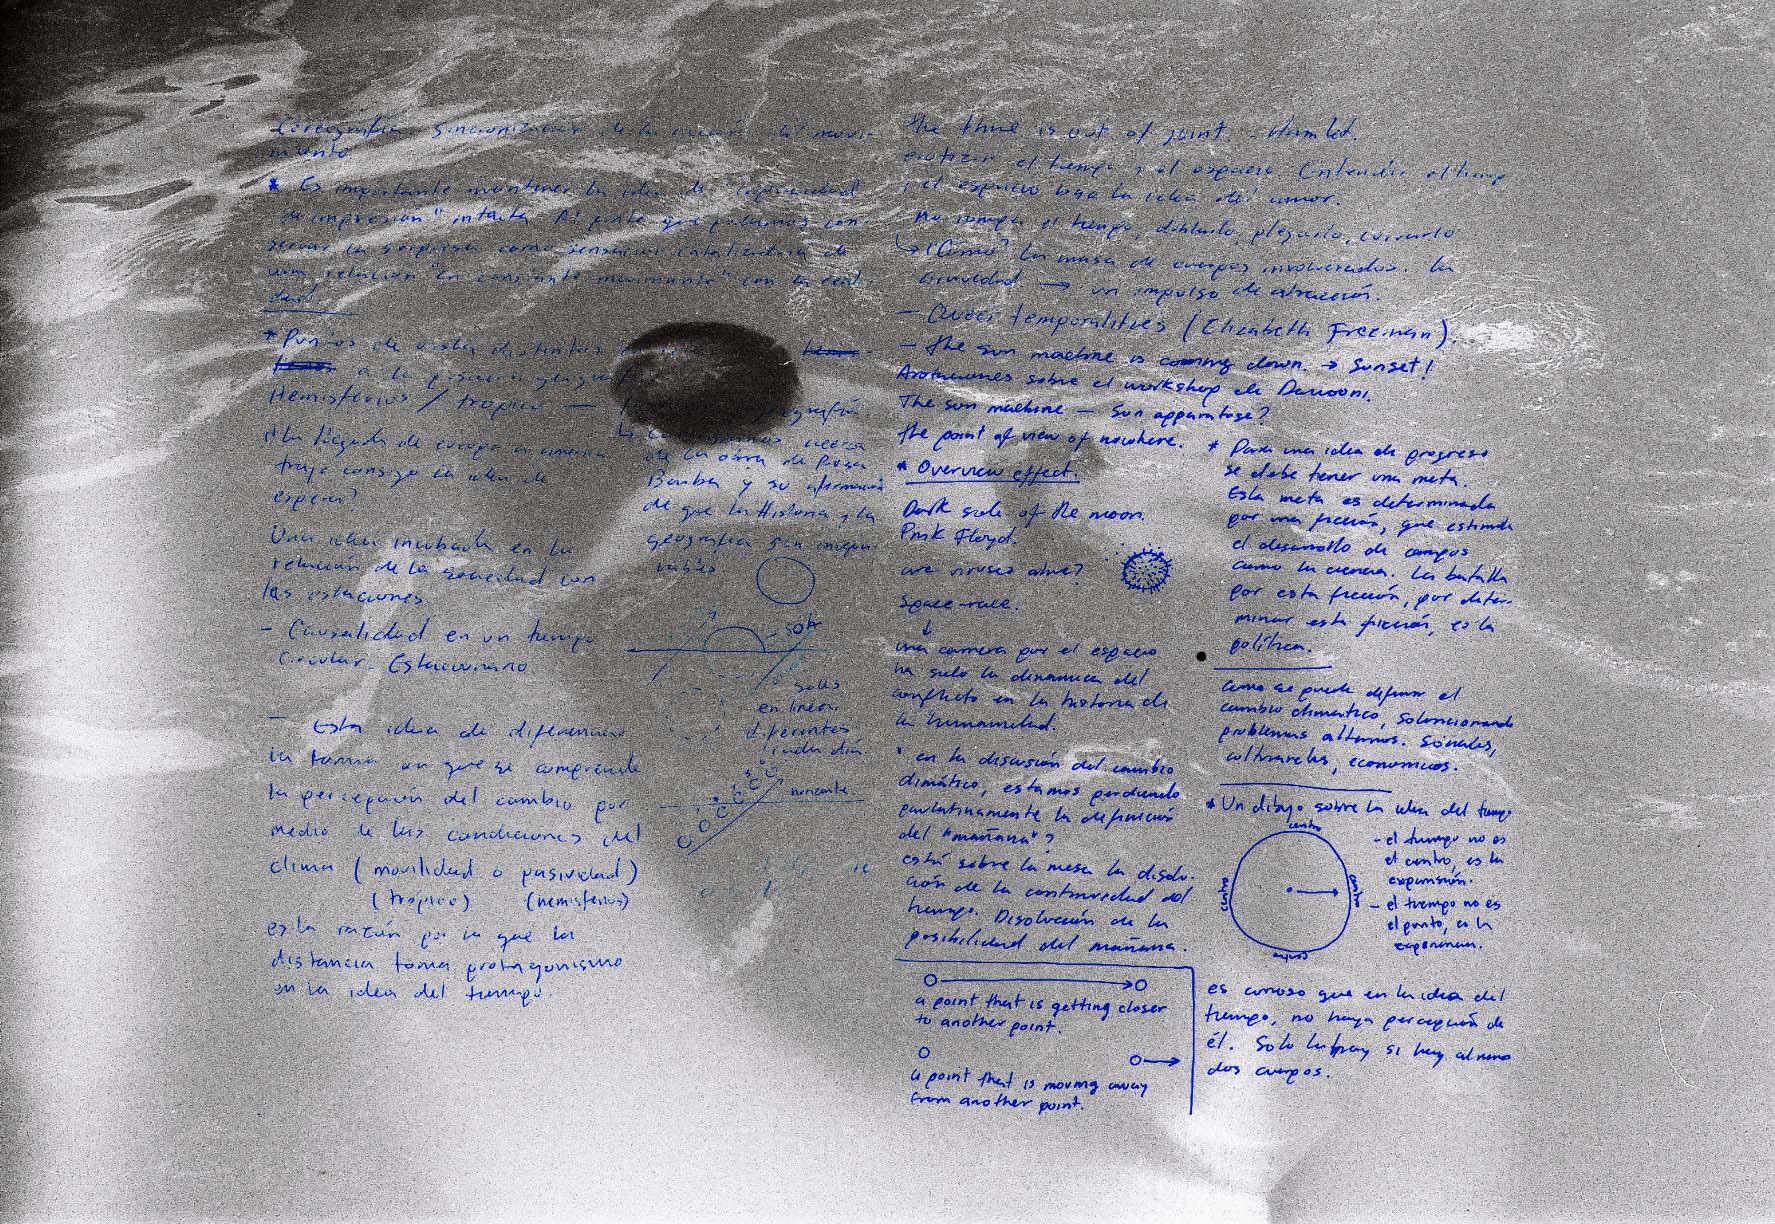 Coreografías sincronizadas de la noción del movi-
miento.
* Es importante mantener la idea de "capacidad
de impresión" intacta. Al punto que podamos con-
servar la sorpresa como sensación catalizadora de
una relación "en constante movimiento" con la reali-
dad
* Puntos de vista distintos
a la posición
Hemisferios / trópico —
* La llegada de europa a america
trajo consigo la idea de
espera?
Una idea incubada en la
relación de la sociedad con
las estaciones.
- Causalidad en un tiempo
circular. Estacionario
- Esta idea de diferenciar
la forma en que se comprende
la percepción del cambio por
medio de las condiciones del
clima (movilidad o pasividad)
(trópico) (hemisferios)
es la razón por la que la
distancia toma protagonismo
en la idea del tiempo.
acerca
de la obra de Rosa
Barba y su afirmación
de que la Historia y la
geografía son insepa-
rables
- sol
soles
en lineas
diferentes
cada día
horizonte.
The time is out of joint. - Hamlet.
erotizar el tiempo y el espacio. Entender el tiempo
y el espacio bajo la idea del amor.
No romper el tiempo, doblarlo, plegarlo, curvarlo
↳ ¿Cómo? La masa de cuerpos involucrados. La
Gravedad → un impulso de atracción.
- Queer temporalities (Elizabeth Freeman).
- the sun machine is coming down. → Sunset!
Anotaciones sobre el workshop de
The sun machine — Sun apparatuse?
the point of view of nowhere.
* Overview effect.
Dark side of the moon.
Pink Floyd.
are viruses alive?
Space-race.
↓
una carrera por el espacio
ha sido la dinamica del
conflicto en la historia de
la humanidad.
* en la discusión del cambio
climático, estamos perdiendo
paulatinamente la definición
del "mañana"?
está sobre la mesa la disolu-
ción de la continuidad del
tiempo. Disolución de la
posibilidad del mañana.
a point that is getting closer
to another point.
a point that is moving away
from another point.
* Para una idea de progreso
se debe tener una meta.
Esta meta es determinada
por una ficción, que estimula
el desarrollo de campos
como la ciencia. La batalla
por esta ficción, por deter-
minar esta ficción, es la
política.
como se puede definir el
cambio climatico, solucionando
problemas alternos. Sociales,
culturales, economicos.
* Un dibujo sobre la idea del tiempo
centro
centro
centro
centro
- el tiempo no es
el centro, es la
expansión.
- el tiempo no es
el punto, es la
experiencia.
es curioso que en la idea del
tiempo, no haya percepción de
él. Solo la hay si hay al menos
dos cuerpos.